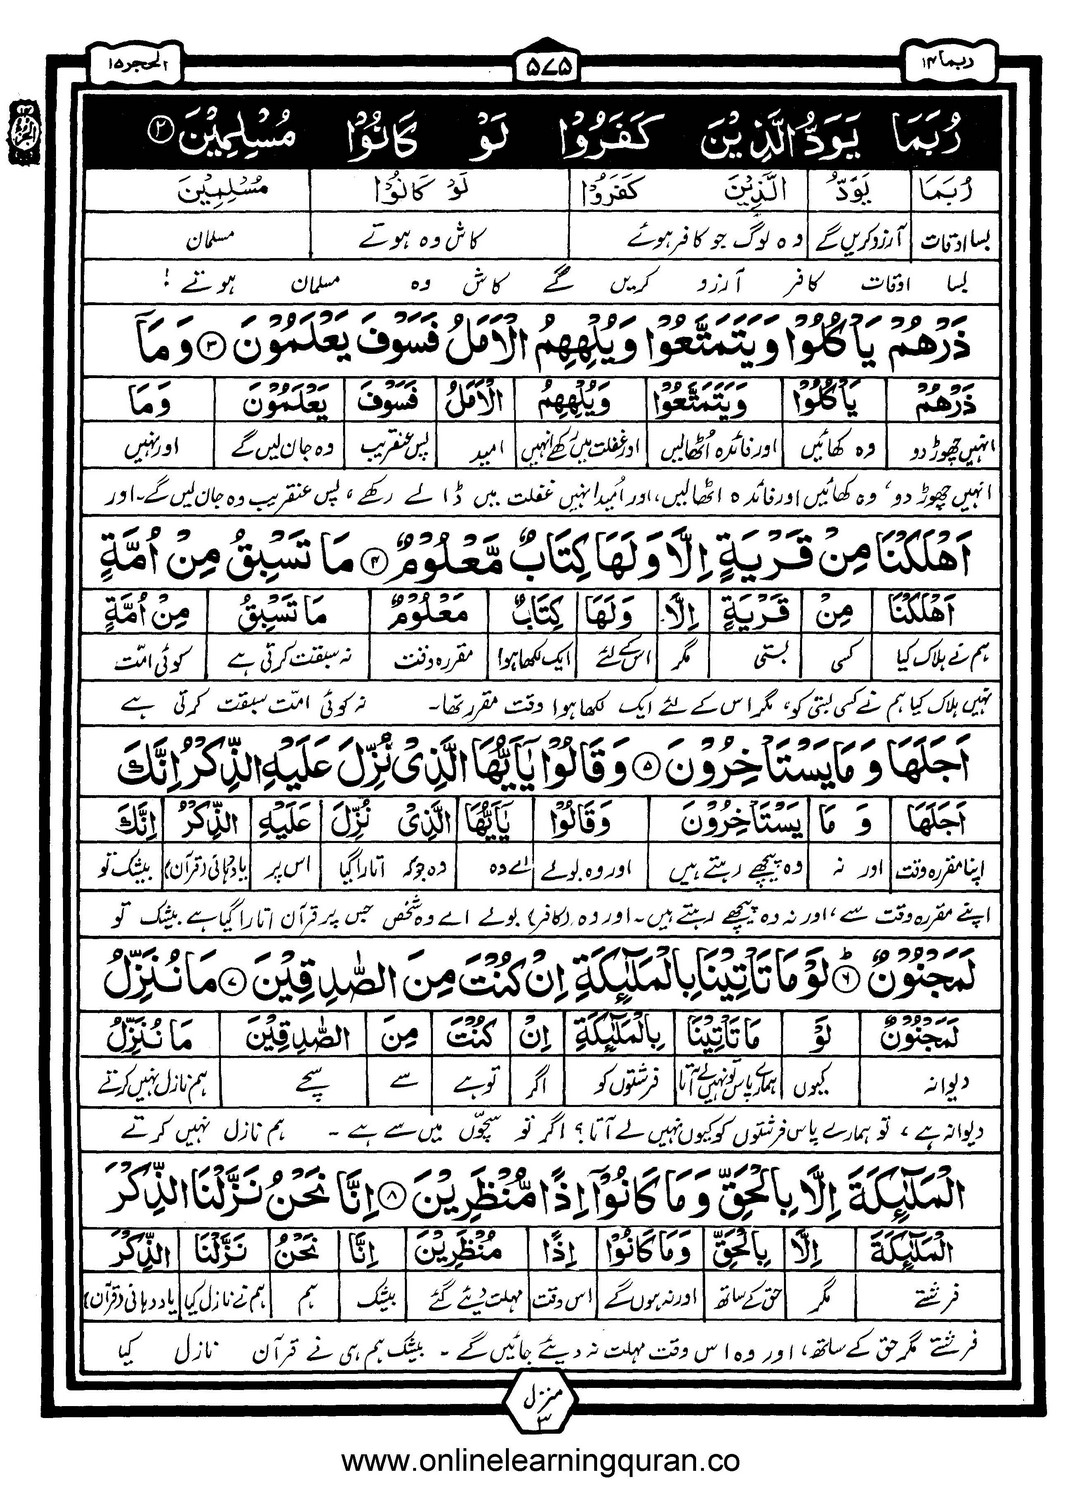 ربما ۱۴
۵۷۵
الحجر ۱۵
رُبَمَا يَوَدُّ الَّذِيْنَ كَفَرُوْا لَوْ كَانُوْا مُسْلِمِيْنَ ۲
رُبَمَا يَوَدُّ الَّذِيْنَ كَفَرُوْا لَوْ كَانُوْا مُسْلِمِيْنَ
بسا اوقات آرزو کریں گے وہ لوگ جو کافر ہوئے کاش وہ ہوتے مسلمان
بسا اوقات کافر آرزو کریں گے کاش وہ مسلمان ہوتے !
ذَرْهُمْ يَاْكُلُوْا وَيَتَمَتَّعُوْا وَيُلْهِهِمُ الْاَمَلُ فَسَوْفَ يَعْلَمُوْنَ ۳ وَمَآ
ذَرْهُمْ يَاْكُلُوْا وَيَتَمَتَّعُوْا وَيُلْهِهِمُ الْاَمَلُ فَسَوْفَ يَعْلَمُوْنَ وَمَا
انہیں چھوڑ دو وہ کھائیں اور فائدہ اُٹھالیں اور غفلت میں رکھے انہیں امید پس عنقریب وہ جان لیں گے اور نہیں
انہیں چھوڑ دو، وہ کھائیں اور فائدہ اٹھالیں، اور اُمید انہیں غفلت میں ڈالے رکھے، پس عنقریب وہ جان لیں گے۔ اور
اَهْلَكْنَا مِنْ قَرْيَةٍ اِلَّا وَلَهَا كِتَابٌ مَّعْلُوْمٌ ۴ مَا تَسْبِقُ مِنْ اُمَّةٍ
اَهْلَكْنَا مِنْ قَرْيَةٍ اِلَّا وَلَهَا كِتَابٌ مَعْلُوْمٌ مَا تَسْبِقُ مِنْ اُمَّةٍ
ہم نے ہلاک کیا کسی بستی مگر اس کے لئے ایک لکھا ہوا مقررہ وقت نہ سبقت کرتی ہے کوئی امّت
نہیں ہلاک کیا ہم نے کسی بستی کو، مگر اس کے لئے ایک لکھا ہوا وقت مقرر تھا۔ نہ کوئی امّت سبقت کرتی ہے
اَجَلَهَا وَمَا يَسْتَاْخِرُوْنَ ۵ وَقَالُوْا يٰٓاَيُّهَا الَّذِىْ نُزِّلَ عَلَيْهِ الذِّكْرُ اِنَّكَ
اَجَلَهَا وَ مَا يَسْتَاْخِرُوْنَ وَقَالُوْا يٰٓاَيُّهَا الَّذِىْ نُزِّلَ عَلَيْهِ الذِّكْرُ اِنَّكَ
اپنا مقررہ وقت اور نہ وہ پیچھے رہتے ہیں اور وہ بولے اے وہ وہ جو کہ اتارا گیا اس پر یاددہانی (قرآن) بیشک تو
اپنے مقررہ وقت سے، اور نہ وہ پیچھے رہتے ہیں۔ اور وہ (کافر) بولے اے وہ شخص جس پر قرآن اتارا گیا ہے بیشک تو
لَمَجْنُوْنٌ ۶ لَوْ مَا تَاْتِيْنَا بِالْمَلٰٓئِكَةِ اِنْ كُنْتَ مِنَ الصّٰدِقِيْنَ ۷ مَا نُنَزِّلُ
لَمَجْنُوْنٌ لَوْ مَا تَاْتِيْنَا بِالْمَلٰٓئِكَةِ اِنْ كُنْتَ مِنَ الصّٰدِقِيْنَ مَا نُنَزِّلُ
دیوانہ کیوں ہمارے پاس تو نہیں لے آتا فرشتوں کو اگر تو ہے سے سچے ہم نازل نہیں کرتے
دیوانہ ہے، تو ہمارے پاس فرشتوں کو کیوں نہیں لے آتا؟ اگر تو سچوّں میں سے ہے ۔ ہم نازل نہیں کرتے
الْمَلٰٓئِكَةَ اِلَّا بِالْحَقِّ وَمَا كَانُوْٓا اِذًا مُّنْظَرِيْنَ ۸ اِنَّا نَحْنُ نَزَّلْنَا الذِّكْرَ
الْمَلٰٓئِكَةَ اِلَّا بِالْحَقِّ وَمَا كَانُوْٓا اِذًا مُنْظَرِيْنَ اِنَّا نَحْنُ نَزَّلْنَا الذِّكْرَ
فرشتے مگر حق کے ساتھ اور نہ ہوں گے اس وقت مہلت دیئے گئے بیشک ہم ہم نے نازل کیا یاددہانی (قرآن)
فرشتے مگر حق کے ساتھ، اور وہ اس وقت مہلت نہ دیئے جائیں گے ۔ بیشک ہم ہی نے قرآن نازل کیا
منزل ۳
www.onlinelearningquran.co